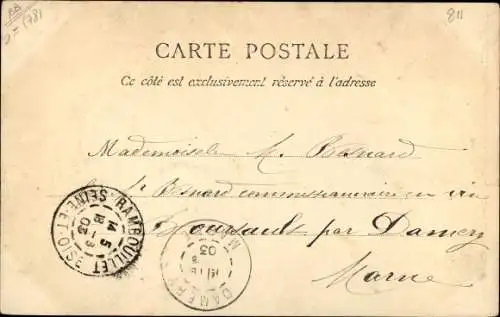 CARTE POSTALE
Ce côté est exclusivement réservé à l'adresse
Mademoiselle M. Besnard
Besnard commissionnaire en vin
Boursault par Damery
Marne
RAMBOUILLET
SEINE-ET-OISE
14 - 5
03
DAMERY
03
811